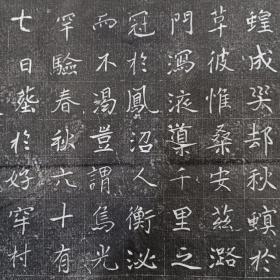 蝗成災却秋螟於
草彼惟桑安茲潞
門瀉液導千里之
冠於鳳沼人衡泌
而不渴豈謂馬光
罕驗春秋六十有
七日葬於好牢村